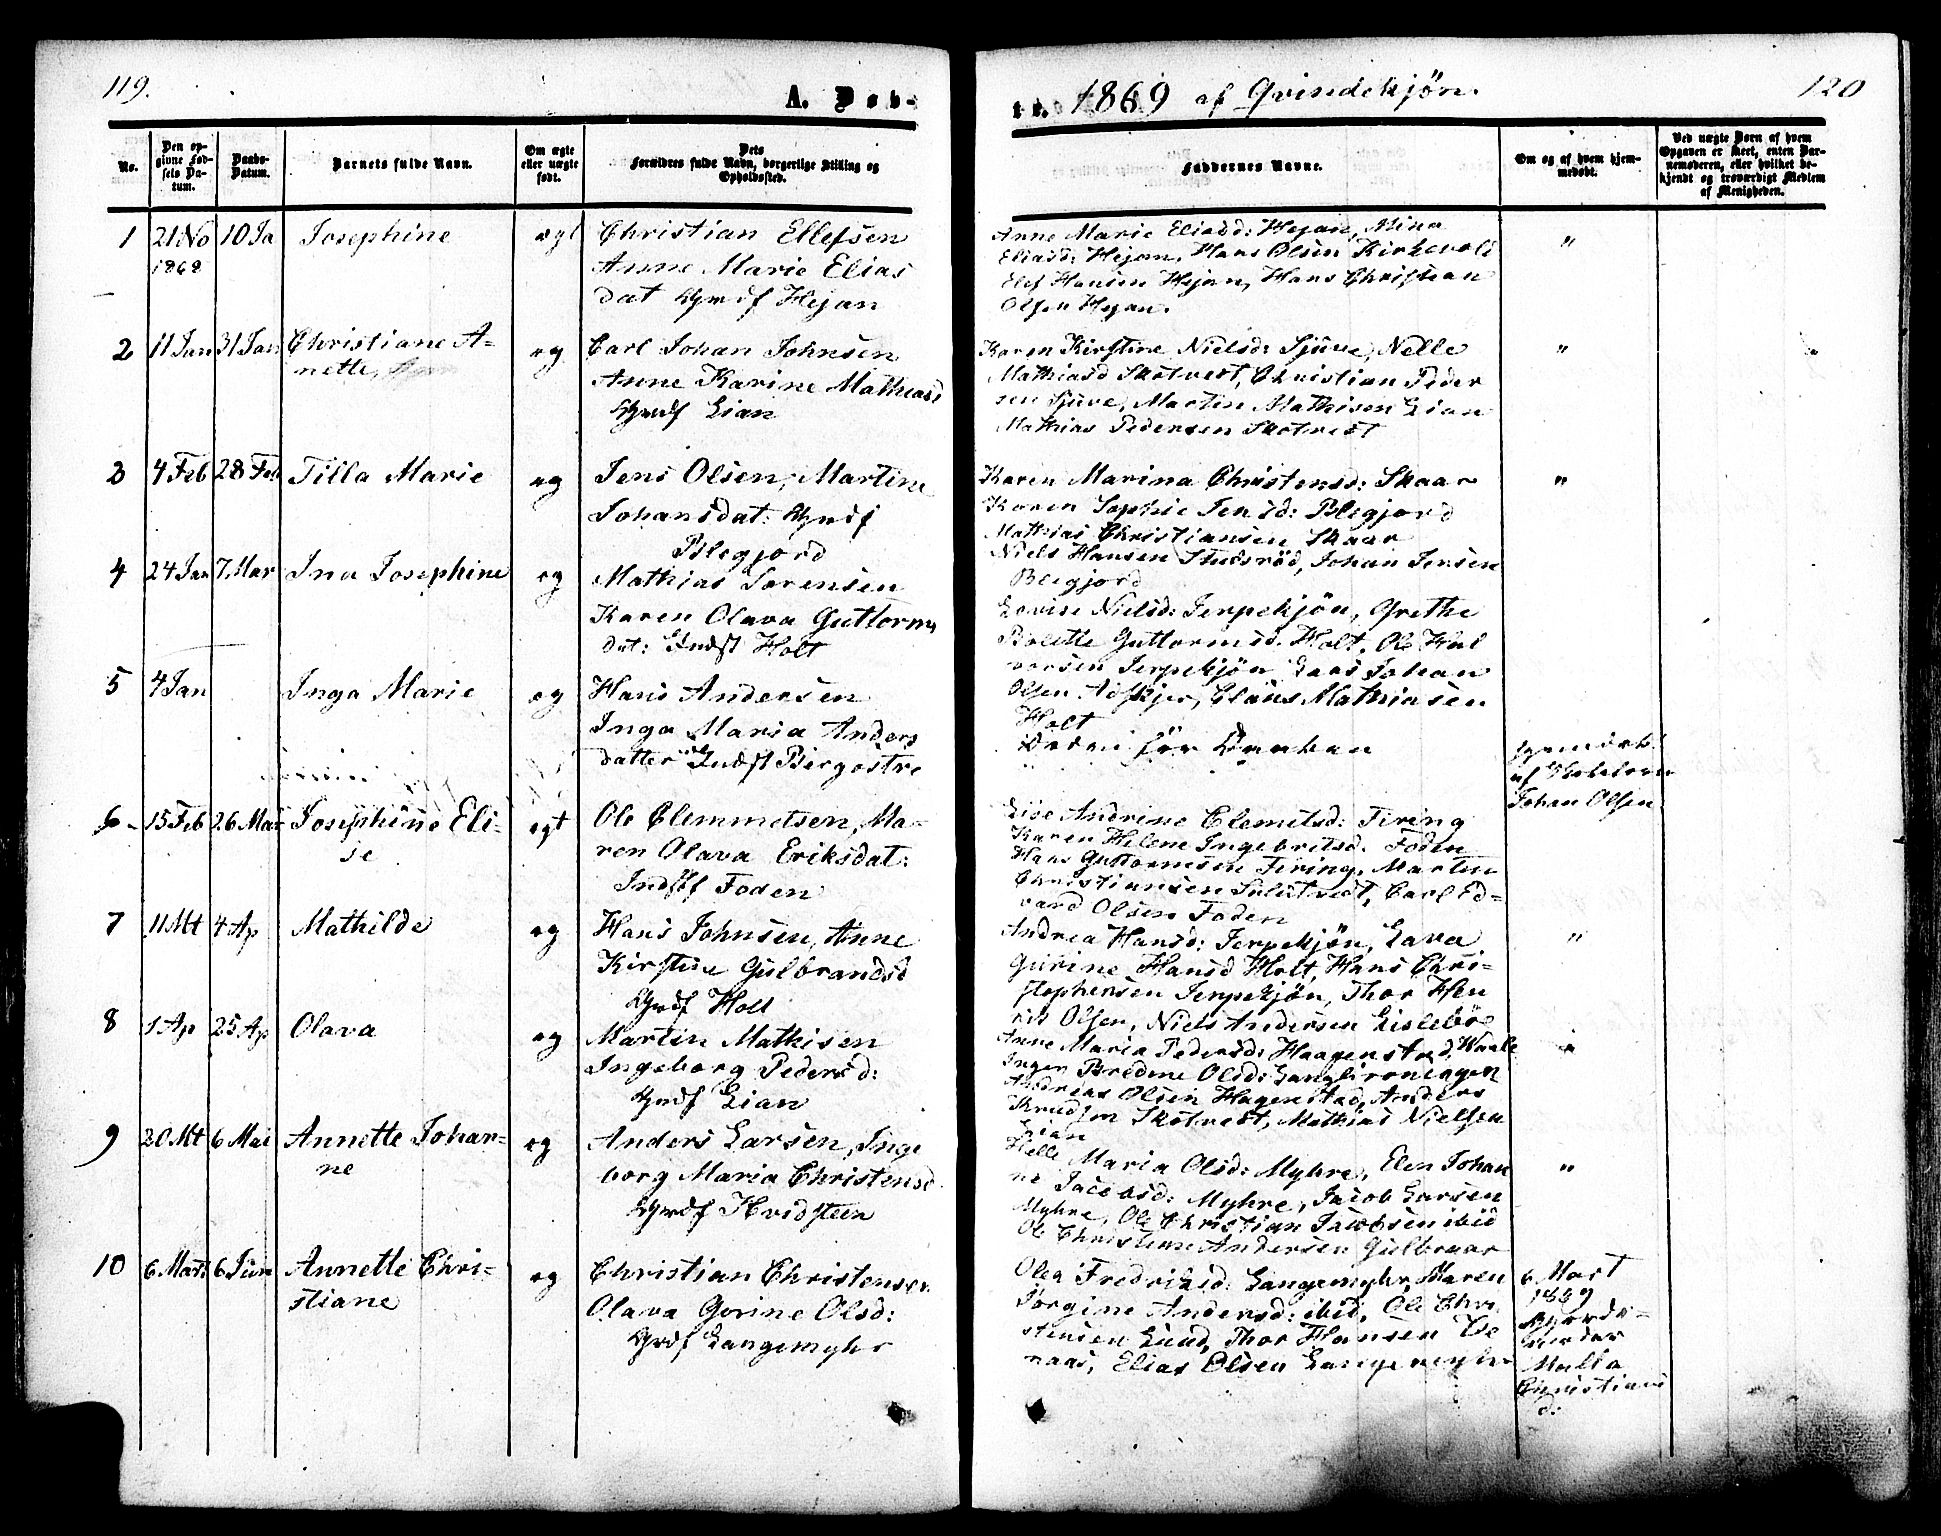 119.
A. Døb-
te. 1869 af Qvindekjøn.
120
No.
Den op-
givne Fød-
sels Da-
tum.
Daabs-
Datum.
Barnets fulde Navn.
Om ægte
eller uægte
født.
Dets
Forældres fulde Navn, borgerlige Stilling og
Opholdssted.
Faddernes Navne.
Om og af hvem hjem-
medøbt.
Ved uægte Børn af hvem
Opgaven er skeet, enten Bar-
nemoderen, eller hvilket be-
kjendt og troværdigt Medlem
af Menigheden.
1 21 No 10 Ja Josephine ægt Christian Ellefsen
1868
Anne Marie Elias
dat Gmdf Hejan
Anne Marie Eliasd: Hejan, Mina
Eliasd: Hejan, Hans Olsen Kirkevold
Elef Hansen Hejan, Hans Christian
Olsen Hejan.
"
2 11 Jan 31 Jan Christiane A=
nette,
æg Carl Johan Johnsen
Anne Karine Mathiasd
Gmdf Lian
Karen Kirstine Nielsd: Sjuve, Nelle
Mathiasd Skotvest, Christian Peder
sen Sjuve, Martin Mathisen Lian
Mathias Pedersen Skotvest
"
3 4 Feb 28 Feb Tilla Marie æg Jens Olsen, Martine
Johansdat: Gmdf
Blegjord
Karen Marina Christensd: Skaar
Karen Sophie Jensd: Blegjord
Mathias Christiansen Skaar
Niels Hansen Stulsrød, Johan Jensen
Blegjord
"
4 24 Jan 7 Mar Ina Josephine æg Mathias Sørensen
Karen Olava Guttorms
dat: Indst Holt
Lovise Nielsd: Jerpekjøn, Grethe
Bolette Guttormsd. Holt, Ole Hal
vorsen Jerpekjøn Lars Johan
Olsen Adskjer, Claus Mathiasen
Holt
5 4 Jan Inga Marie æg Hans Andersen
Inga Maria Anders
datter Indst Bergostre
Døden før Daaben
af Skolelærer
Johan Olsen
6 15 Feb 26 Mar Josephine Eli-
se
ægt Ole Clemmetsen, Ma-
ren Olava Eriksdat:
Indstf Foden
Lise Andrine Clemetsd: Tiring
Karen Helene Ingebritsd. Foden
Hans Guttormsen Tiring, Martin
Christiansen Sulutvedt, Carl Ed=
vard Olsen Foden
7 11 Mt 4 Ap Mathilde æg Hans Johnsen, Anne
Kirstine Gulbrandsd
Gmdf Holt
Andrea Hansd: Jerpekjøn, Lava
Gurine Hansd Holt, Hans Chri=
stophersen Jerpekjøn, Thor Hen
rik Olsen, Niels Andersen Lislebø
"
8 1 Ap 25 Ap Olava æg Martin Mathisen
Ingeborg Pedersd:
Gmdf Lian
Anne Maria Pedersd: Haagenstad, Waale
Inger Bredine Olsd: Langlirønningen
Andreas Olsen Hagenstad, Anders
Knudsen Skotvest, Mathias Nielsen
Lian
"
9 20 Mt 6 Mai Annette Johan=
ne
æg Anders Larsen, Inge
borg Maria Christensd
Gmdf Hvidsteen
Helle Maria Olsd: Myhre, Elen Johan
ne Jacobsd: Myhre, Jacob Larsen
Myhre, Ole Christian Jacobsen ibid
Ole Christian Andersen Gulbraar
"
10 6 Marts 6 Jun Annette Chri=
stiane
æg Christian Christensen
Olava Gorine Olsd:
Gmdf Langemyhr
Olea Fredriksd: Langemyhr, Maren
Jørgine Andersd: ibid, Ole Chri
stensen Lund, Thor Hansen
naas, Elias Olsen Langemyhr
6 Mart
1869
Gjorde-
moder
Malla
Christians
d: